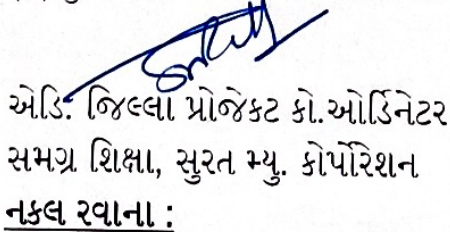 એડિ. જિલ્લા પ્રોજેકટ કો.ઓર્ડિનેટર
સમગ્ર શિક્ષા, સુરત મ્યુ. કોર્પોરેશન
નકલ રવાના :